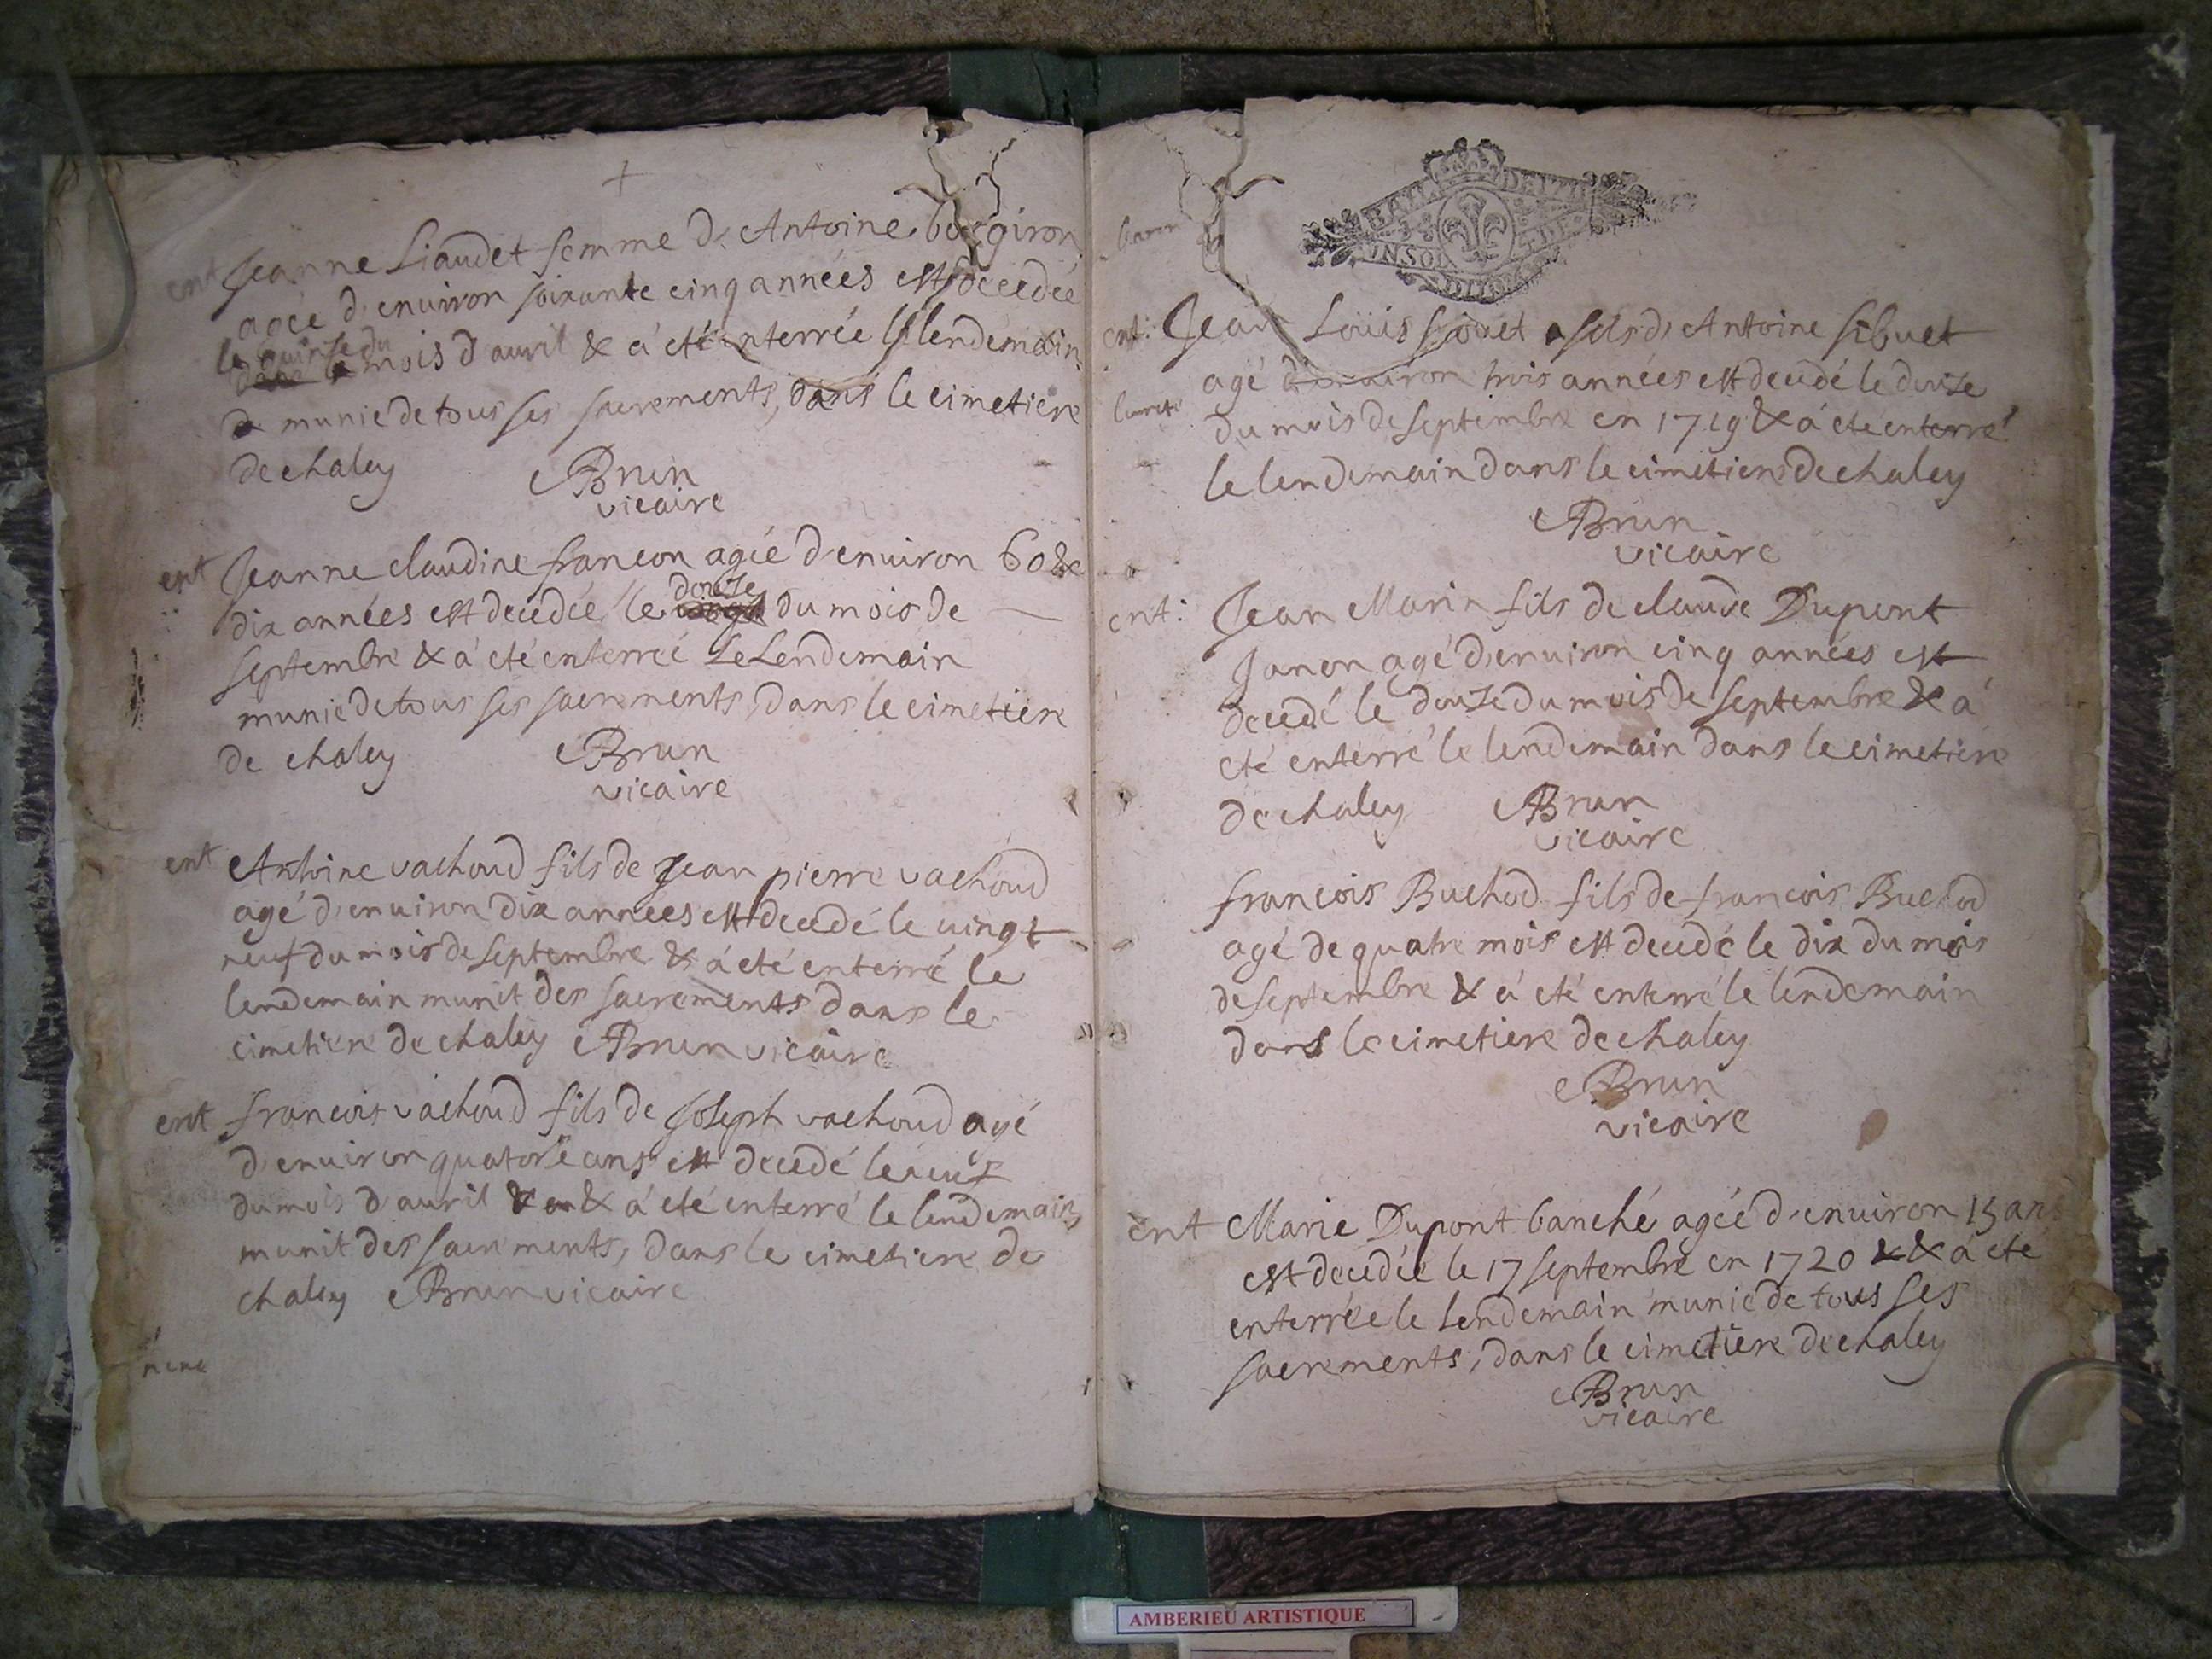 ent Jeanne Liaudet femme d'Antoine borgiron
agée d'environ soixante cinq années est decedée
le quinze du
mois d'avril & a été enterrée le lendemain
munie de tous ses sacrements, dans le cimetiere
de chaley Brun
vicaire
ent Jeanne claudine françon agée d'environ 60 &
douze
dix années est decedée le du mois de
septembre & a été enterreé Le Lendemain
munie de tous ses sacrements, dans le cimetiere
de chaley Brun
vicaire
ent Antoine vachoud fils de Jean pierre vachoud
agé d'environ dix années est decedé le vingt
neuf du mois de septembre & a été enterré le
lendemain munit des sacrements dans le
cimetiere de chaley Brun vicaire
ent francois vachoud fils de Joseph vachoud agé
d'environ quatorse ans est decedé le neuf
du mois d'avril & a été enterré le lendemain,
munit des sacrements, dans le cimetiere de
chaley Brun vicaire
BAIL DE
UN SOL
ent: Jean Loüis sibuet fils d'Antoine sibuet
agé d'environ trois années est decedé le douse
du mois de septembre en 1719 & a été enterré
le lendemain dans le cimetiere de chaley
Brun
vicaire
ent: Jean Marin fils de claude Dupont
Janon agé d'environ cinq années est
decedé le douze du mois de septembre & a
été enterré le lendemain dans le cimetiere
de chaley Brun
vicaire
francois Buchod fils de francois Buchod
agé de quatre mois est decedé le dix du mois
de septembre & a été enterré le lendemain
dans le cimetiere de chaley
Brun
vicaire
ent Marie Dupont banché agée d'environ 15 ans
est decedée le 17 septembre en 1720 & & a été
enterrée le Lendemain munie de tous ses
sacrements, dans le cimetiere de chaley
Brun
vicaire
AMBERIEU ARTISTIQUE